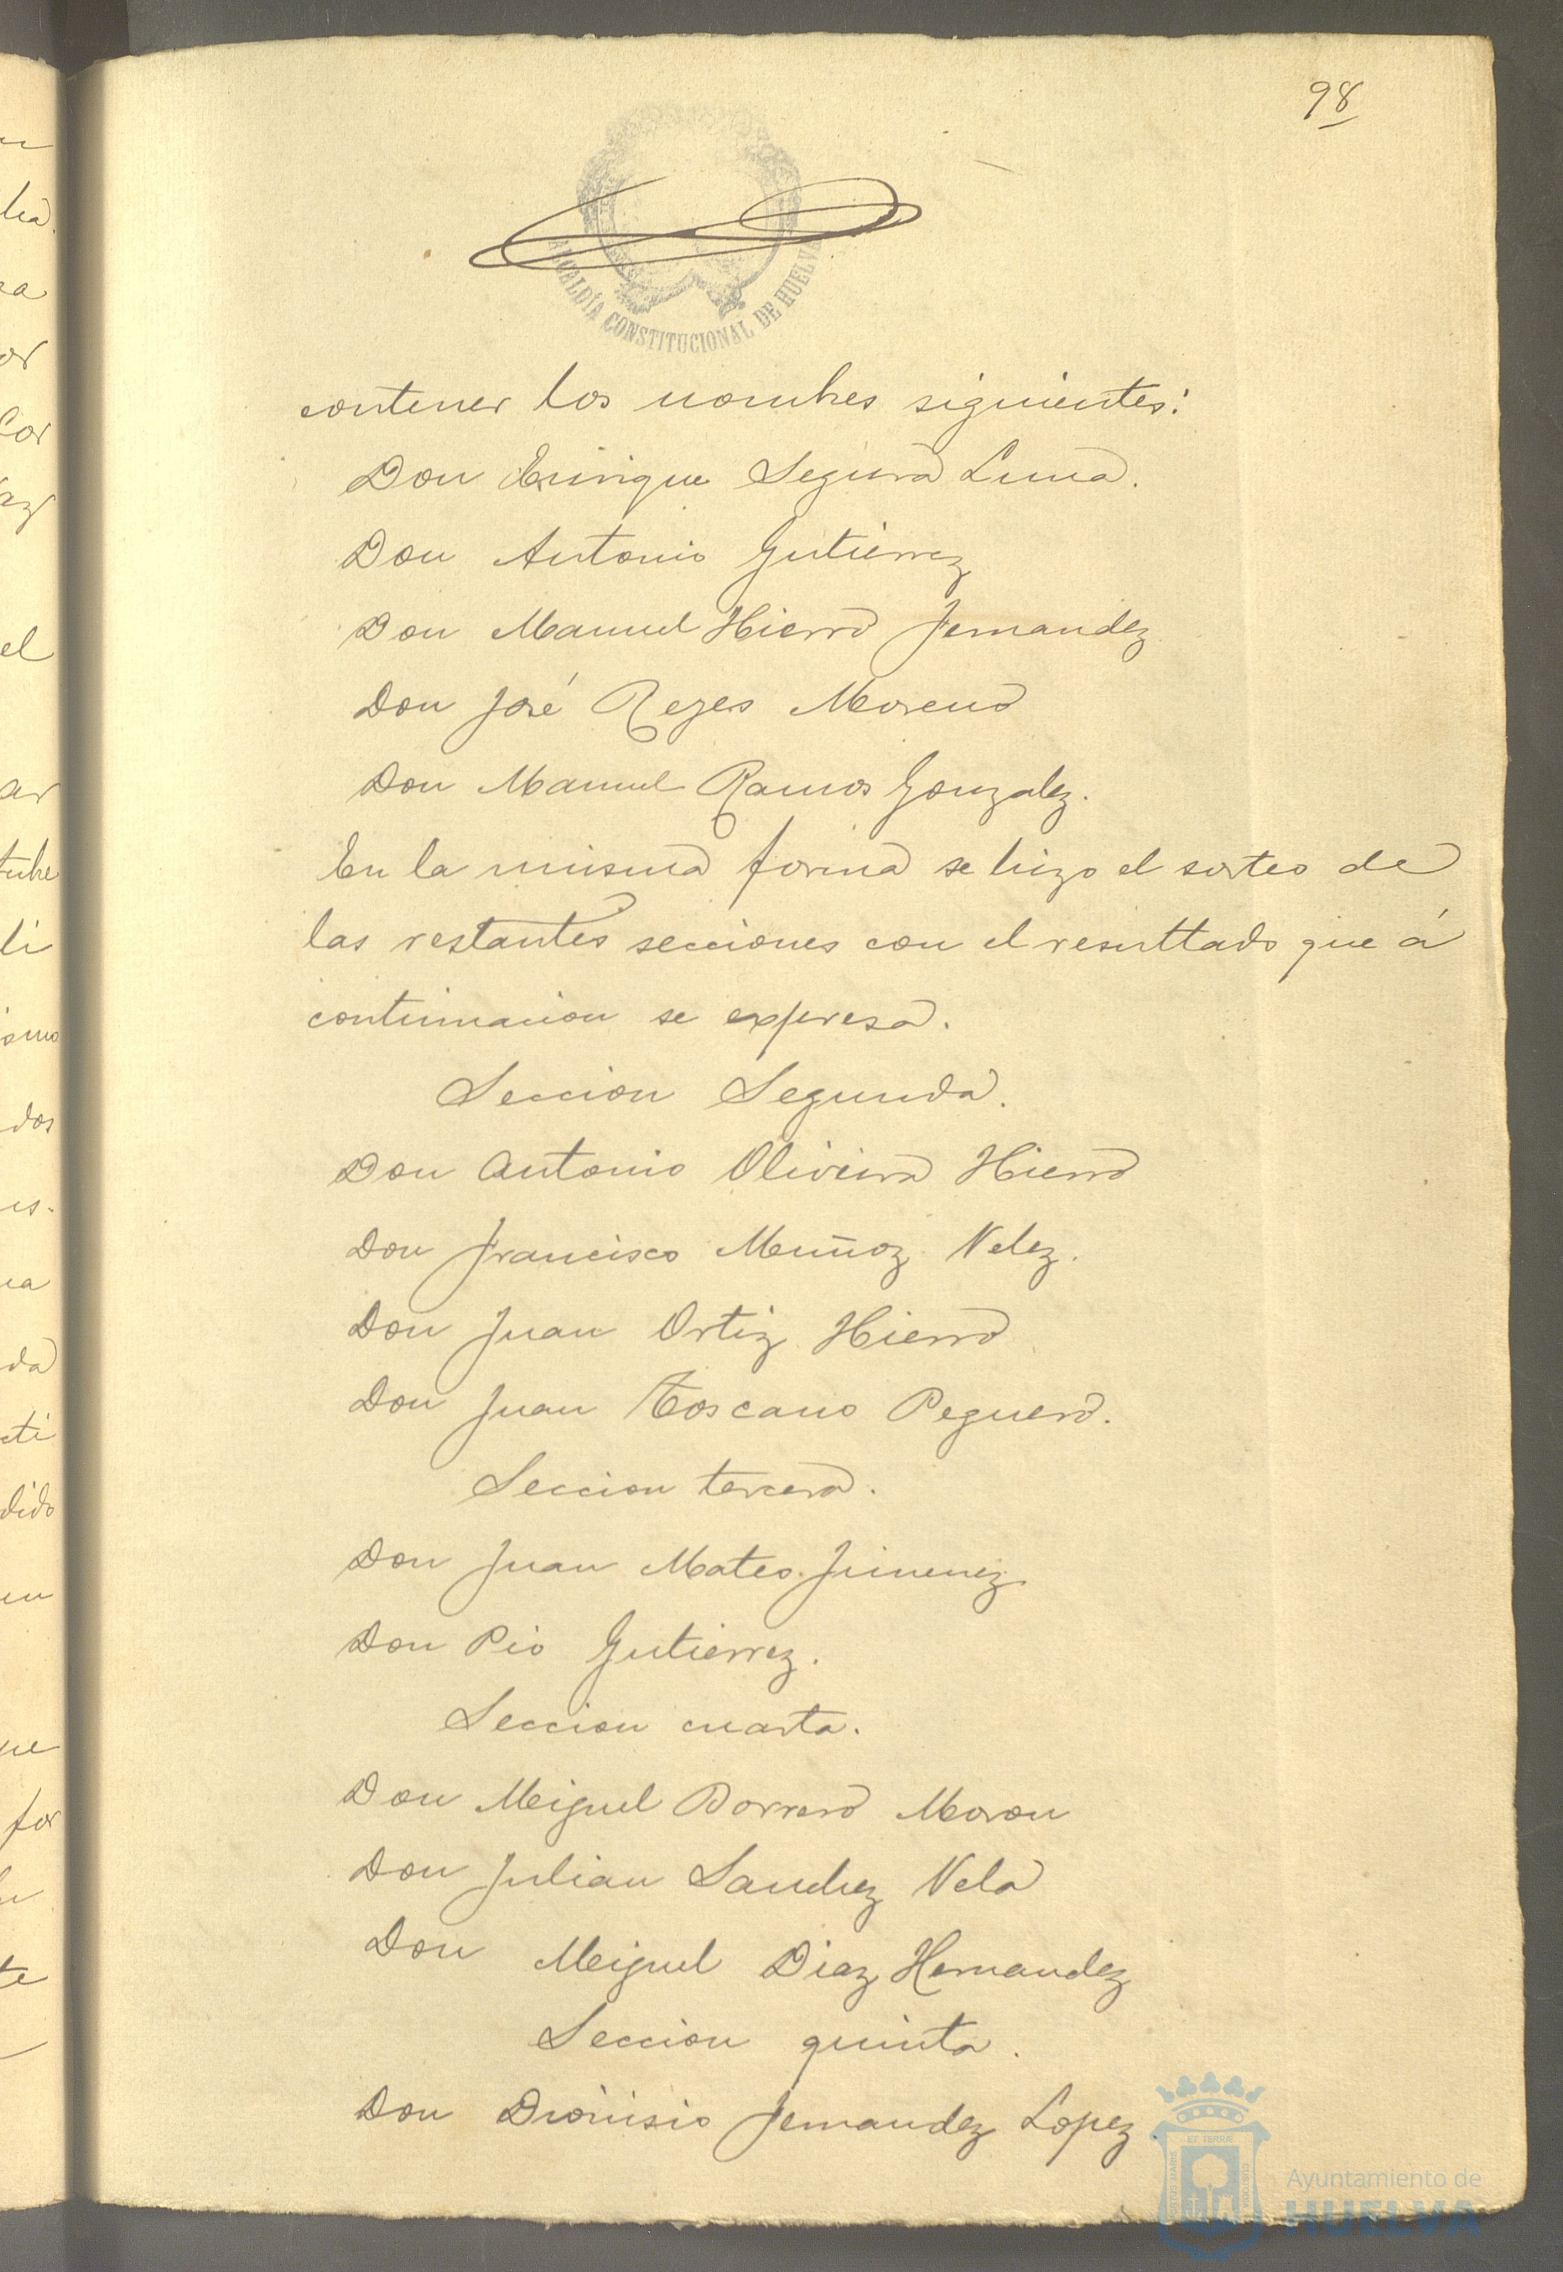 98
ALCALDÍA CONSTITUCIONAL DE HUELVA
contener los nombres siguientes:
Don Enrique Segura Luna.
Don Antonio Gutierrez
Don Manuel Hierro Fernandez
Don José Reyes Moreno
Don Manuel Ramos Gonzalez.
En la misma forma se hizo el sorteo de
las restantes secciones con el resulttado que á
continuacion se expresa.
Seccion Segunda.
Don Antonio Oliveira Hierro
Don Francisco Muñoz Velez.
Don Juan Ortiz Hierro
Don Juan Toscano Peguero.
Seccion tercera.
Don Juan Mateo Jimenez
Don Pio Gutierrez.
Seccion cuarta.
Don Miguel Borrero Moron
Don Julian Sanchez Vela
Don Miguel Diaz Hernandez
Seccion quinta.
Don Dionisio Fernandez Lopez.
Ayuntamiento de
HUELVA